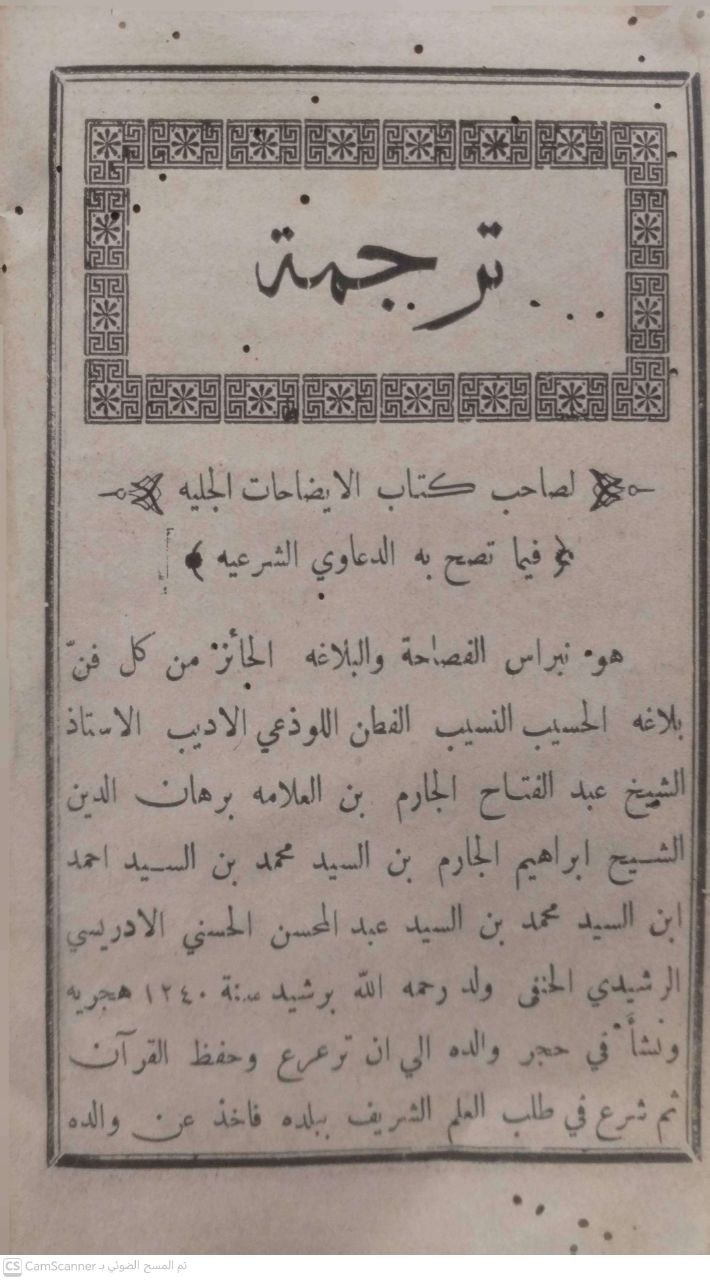 ترجمة
لصاحب كتاب الايضاحات الجليه
﴿ فيما تصح به الدعاوي الشرعيه ﴾
هو نبراس الفصاحة والبلاغه الحائز من كل فنّ
بلاغه الحسيب النسيب الفطن اللوذعي الاديب الاستاذ
الشيخ عبد الفتاح الجارم بن العلامه برهان الدين
الشيخ ابراهيم الجارم بن السيد محمد بن السيد احمد
ابن السيد محمد بن السيد عبد المحسن الحسني الادريسي
الرشيدي الحنفى ولد رحمه الله برشيد سنة ١٢٤٠ هجريه
ونشأ في حجر والده الي ان ترعرع وحفظ القرآن
ثم شرع في طلب العلم الشريف ببلده فاخذ عن والده
CS CamScanner تم المسح الضوئي بـ